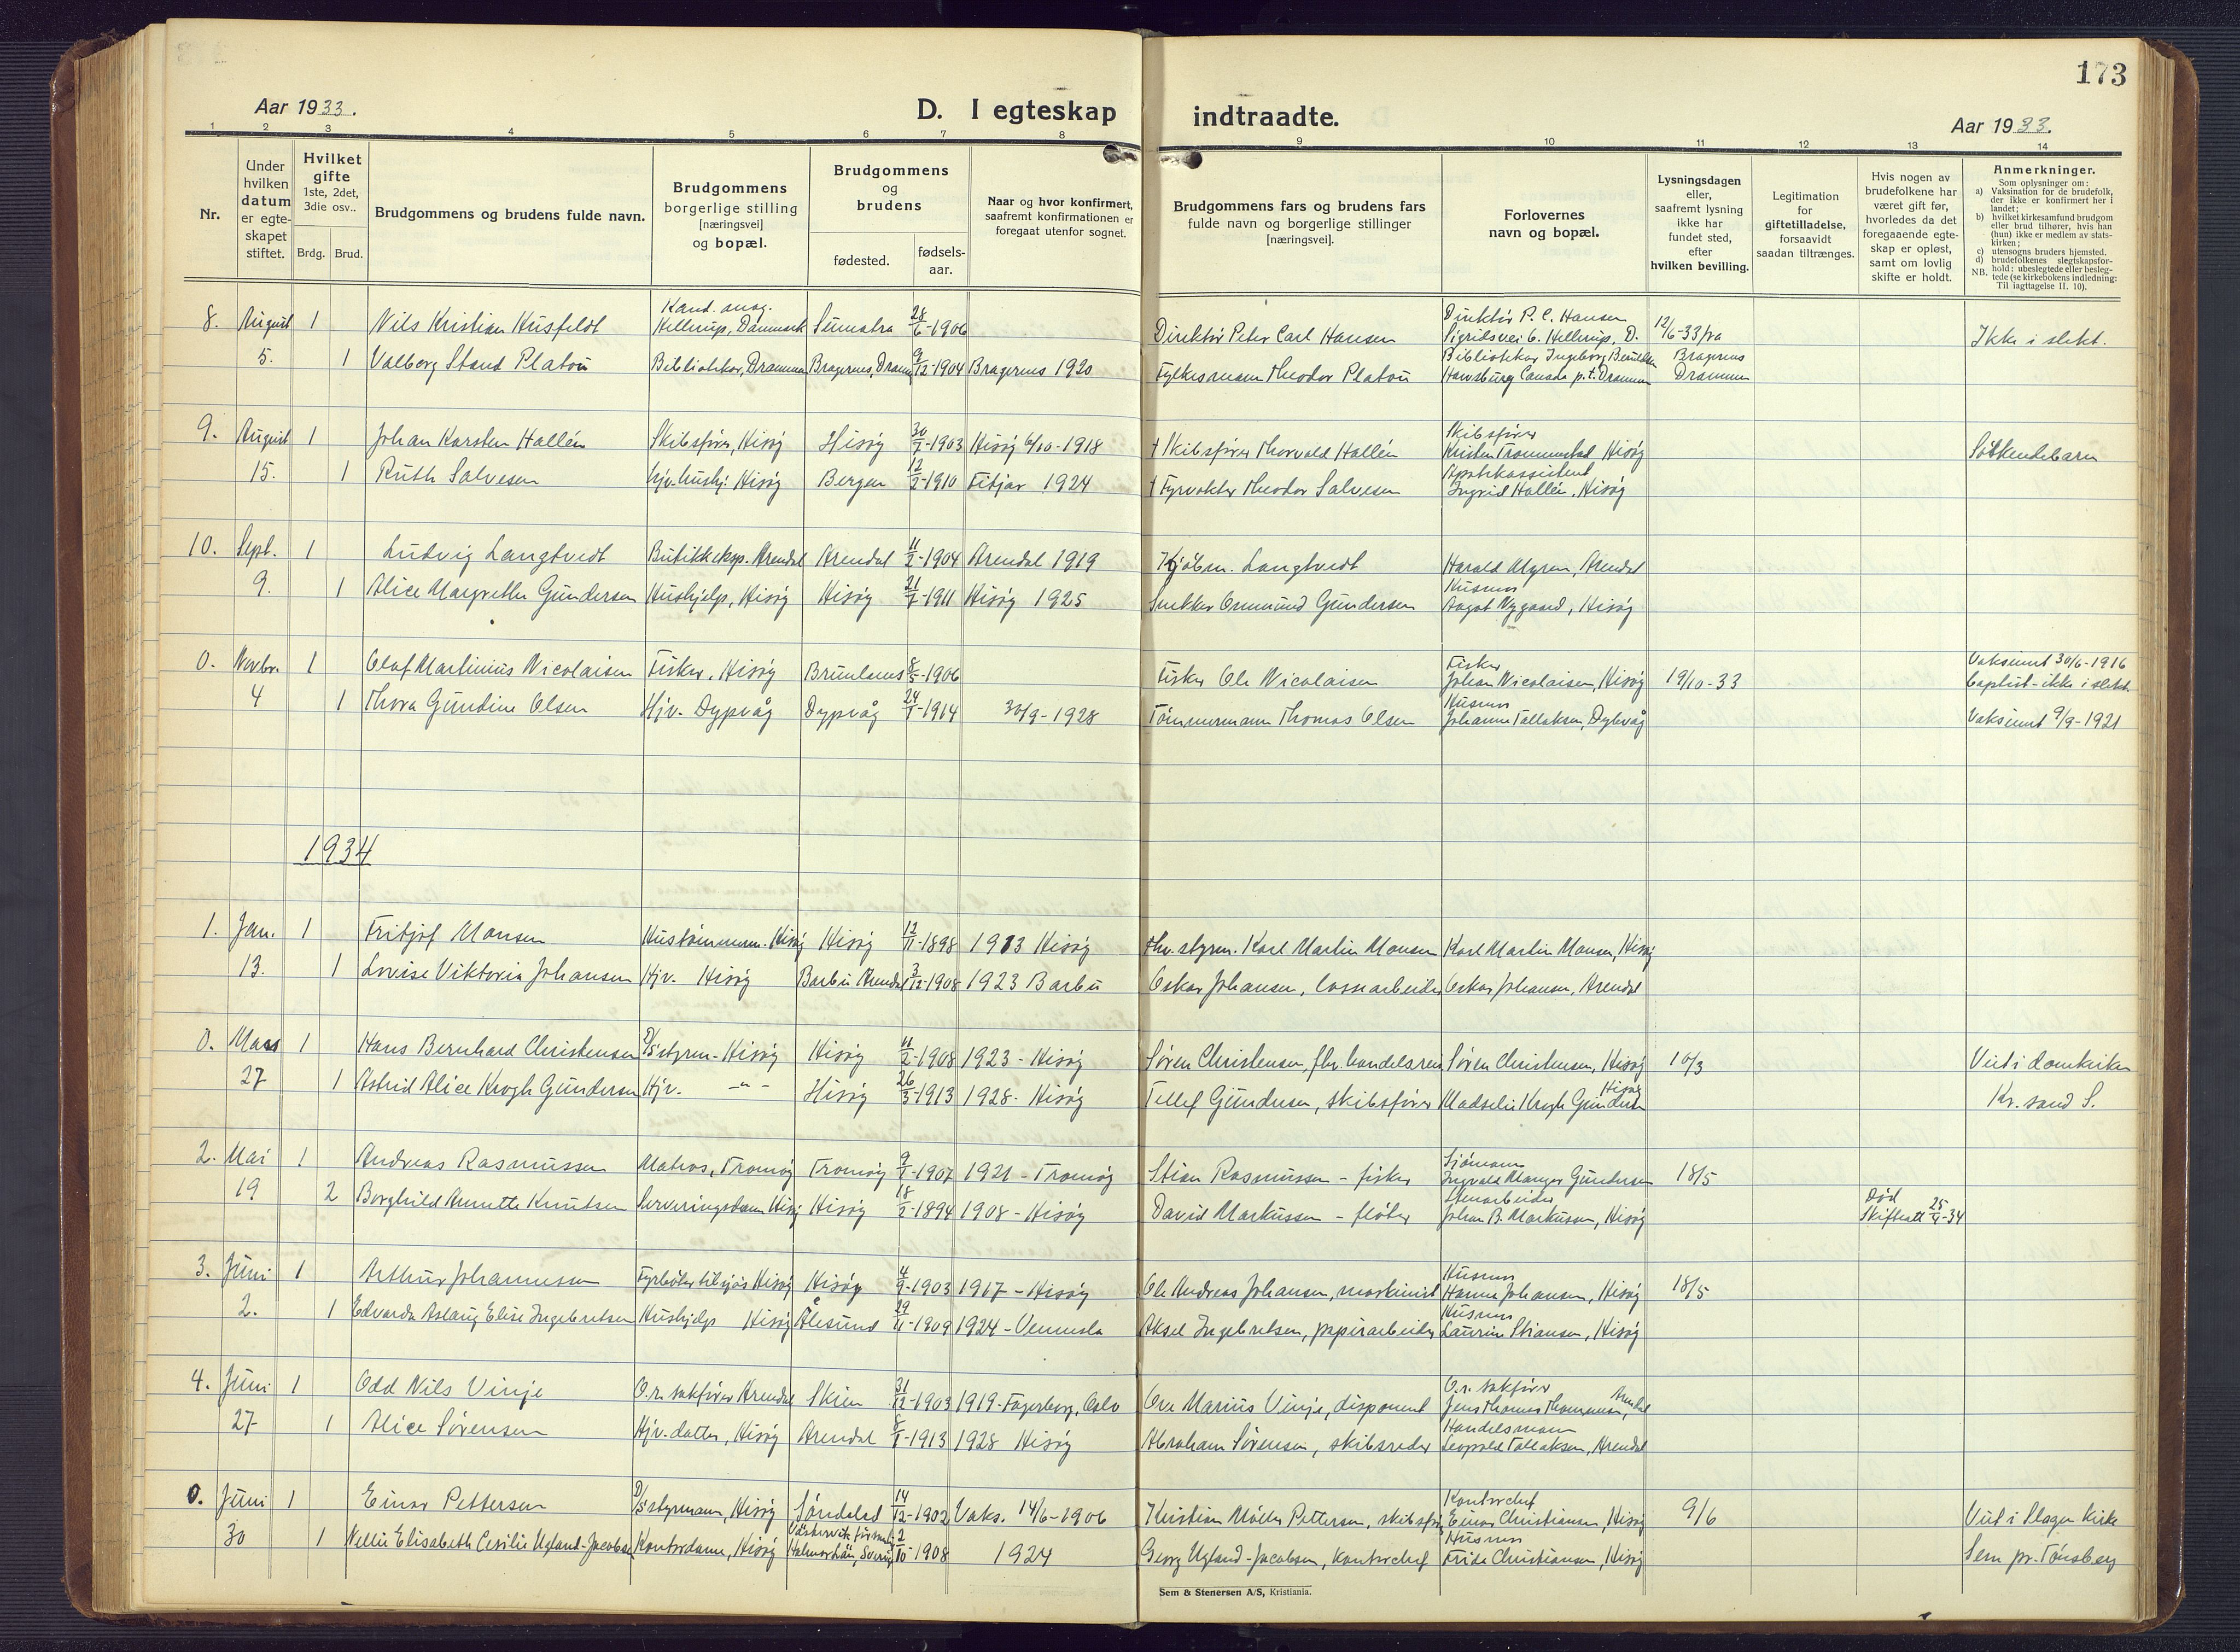 173
Aar 1933.
D. I egteskap indtraadte.
Aar 1933.
1 2 3 4 5 6 7 8 9 10 11 12 13 14
Nr.
Under hvilken datum er egteskapet stiftet.
Hvilket gifte 1ste, 2det, 3die osv..
Brdg. Brud.
Brudgommens og brudens fulde navn.
Brudgommens borgerlige stilling [næringsvei] og bopæl.
Brudgommens og brudens
fødested. fødselsaar.
Naar og hvor konfirmert, saafremt konfirmationen er foregaat utenfor sognet.
Brudgommens fars og brudens fars fulde navn og borgerlige stillinger [næringsvei].
Forlovernes navn og bopæl.
Lysningsdagen eller, saafremt lysning ikke har fundet sted, efter hvilken bevilling.
Legitimation for giftetilladelse, forsaavidt saadan tiltrænges.
Hvis nogen av brudefolkene har været gift før, hvorledes da det foregaaende egteskap er opløst, samt om lovlig skifte er holdt.
Anmerkninger.
Som oplysninger om:
a) Vaksination for de brudefolk, der ikke er konfirmert her i landet;
b) hvilket kirkesamfund brudgom eller brud tilhører, hvis han (hun) ikke er medlem av statskirken;
c) utensogns bruders hjemsted.
d) brudefolkenes slegtskapsforhold; ubeslegtede eller beslegtede (se kirkebokens indledning:
NB. Til iagttagelse II. 10).
8. August 1 Nils Kristian Husfeldt Kand. mag. Hellerup, Danmark Sumatra 28/6-1906 Direktør Peter Carl Hansen Direktør P. C. Hansen Sigridsvei 6. Hellerup, D. 12/6-33 fra Ikke i slekt.
5. 1 Valborg Stand Platou Bibliotekar, Drammen Bragernes, Dramm 9/12-1904 Bragernes 1920 Fylkesmann Theodor Platou Bibliotekar Ingeborg Canada p.t. Drammen Bragernes Drammen
9. August 1 Johan Karsten Hallén Skibsfører, Hisøy Hisøy 30/7-1903 Hisøy 6/10-1918 † Skibsfører Thorvald Hallén Skibsfører Kristen Trommestad Hisøy Søskendebarn
15. 1 Ruth Salvesen Hjv. hushj. Hisøy Bergen 12/2-1910 Fitjar 1924 † Fyrvokter Theodor Salvesen Apotekassistent Ingrid Hallén, Hisøy
10. Sept. 1 Ludvig Langtvedt Butikkeksp. Arendal Arendal 11/2-1904 Arendal 1919 Kjøbm. Langtvedt Harald Mgren, Arendal
9. 1 Alice Margrethe Gundersen Hushjelp, Hisøy Hisøy 21/7-1911 Hisøy 1925 Snekker Osmund Gundersen Husmor Aagot Nygaard, Hisøy
0. Novbr. 1 Olaf Martinius Nicolaisen Fisker, Hisøy Brunlanes 8/5-1906 Fisker Ole Nicolaisen Fisker Johan Nicolaisen, Hisøy 19/10-33 Vaksinert 30/6-1916 baptist - ikke i slekt
4 1 Thora Gundine Olsen Hjv. Dypvåg Dypvåg 24/1-1914 30/9-1928 Tømmermann Thomas Olsen Husmor Johanne Tallaksen, Dybvåg Vaksinert 9/9-1921
1934
1. Jan. 1 Fritjof Monsen Hustømmerm. Hisøy Hisøy 12/11-1898 1913 Hisøy fhv. styrm. Karl Martin Monsen Karl Martin Monsen, Hisøy
13. 1 Lovise Viktoria Johansen Hjv. Hisøy Barbu Arendal 3/12-1908 1923 Barbu Oskar Johansen, lossearbeider Oskar Johansen, Arendal
0. Mars 1 Hans Bernhard Christensen D/S styrm. - Hisøy Hisøy 11/2-1908 1923 - Hisøy Søren Christensen, fhv. handelsreis Søren Christensen, Hisøy 10/3 Viet i domkirken
27 1 Astrid Alice Krogh Gundersen Hjv. - " - Hisøy 26/3-1913 1928 - Hisøy Tellef Gundersen, skibsfører Madselie Krogh Gundersen Hisøy Kr. sand S.
2. Mai 1 Andreas Rasmussen Matros, Tromøy Tromøy 9/1-1907 1921 - Tromøy Stian Rasmussen - fisker Sjømann Ingvald Gundersen 18/5
19 2 Borghild Annette Knutsen Serveringsdame Hisøy Hisøy 18/2-1894 1908 - Hisøy David Markussen - fløter Stenarbeider Johan B. Markussen, Hisøy Død Skifteatt 25/4-34
3. Juni 1 Arthur Johannessen Fyrbøter tilsjøs Hisøy Hisøy 4/9-1903 1917 - Hisøy Ole Andreas Johansen, maskinist Husmor Hanna Johansen, Hisøy 18/5
2. 1 Edvarda Aslaug Elise Ingebretsen Hushjelp Hisøy Ålesund 29/11-1909 1924 - Vennesla Aksel Ingebretsen, papirarbeider Husmor Laurine Stiansen, Hisøy
4. Juni 1 Odd Nils Vinje O.r. sakfører Arendal Skien 31/12-1903 1919 - Fagerborg, Oslo Ove Marius Vinje, disponent O.r. sakfører Jens Thomas Thommesen, Arendal
27 1 Alice Sørensen Hjv. datter, Hisøy Arendal 8/1-1913 1928 Hisøy Abraham Sørensen, skibsreder Handelsmann Leopold Tallaksen, Arendal
0. Juni 1 Einar Pettersen D/S styrmann, Hisøy Søndeled 14/12-1902 Vaks. 14/6-1906 Kristian Møller Pettersen, skibsfører Kontorchef Einar Christiansen, Hisøy 9/6 Viet i Slagen kirke
30 1 Nellie Elisabeth Cecilie Ugland-Jacobsen Kontordame, Hisøy Sverig 2/10-1908 1924 Georg Ugland-Jacobsen, kontorchef Husmor Frida Christiansen, Hisøy Sem pr. Tønsberg
Sem & Stenersen A/S, Kristiania.